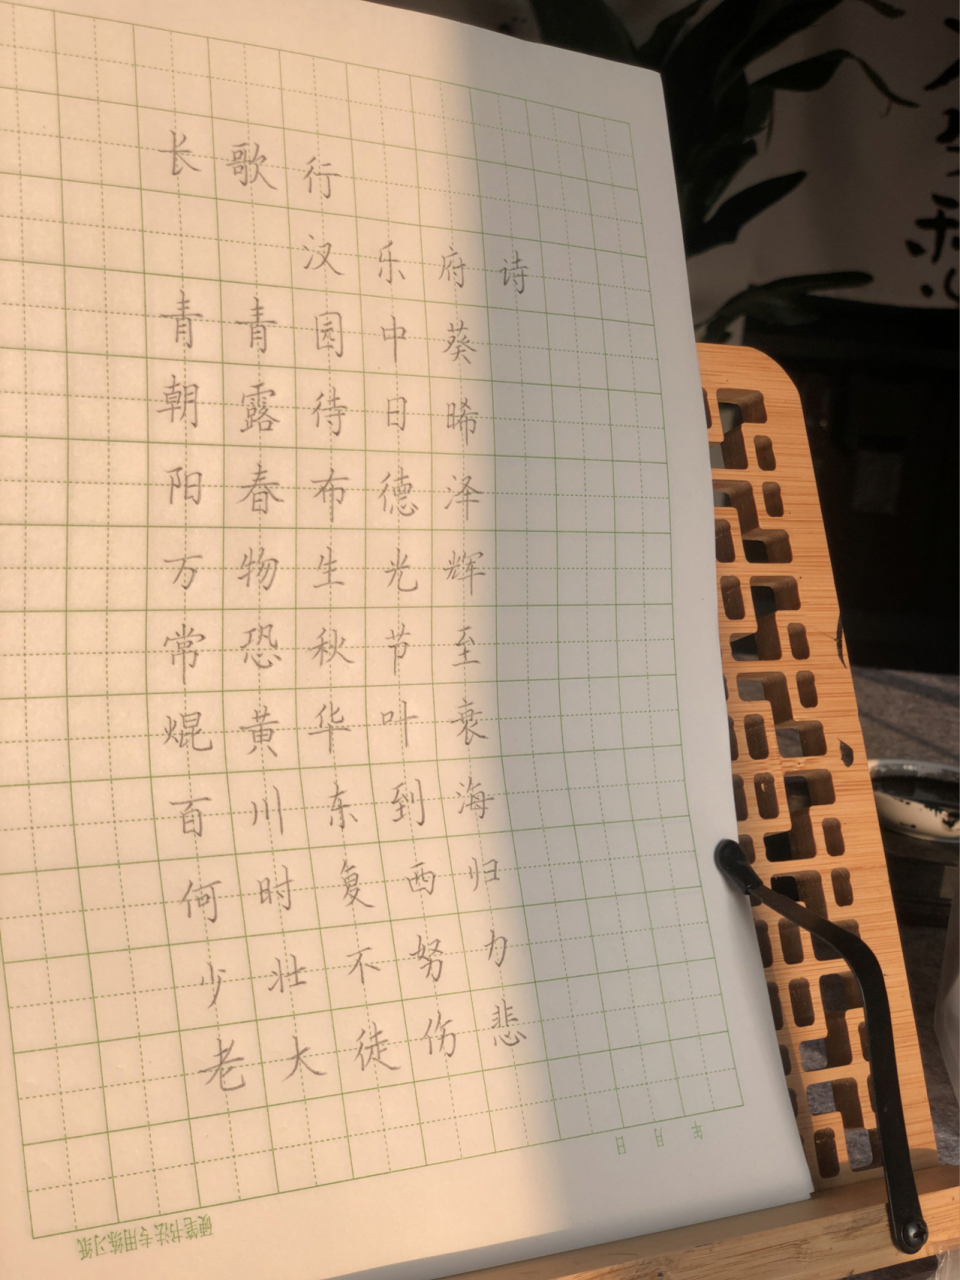 长歌行
汉乐府诗
青青园中葵
朝露待日晞
阳春布德泽
万物生光辉
常恐秋节至
焜黄华叶衰
百川东到海
何时复西归
少壮不努力
老大徒伤悲
年月日
硬笔书法专用练习纸